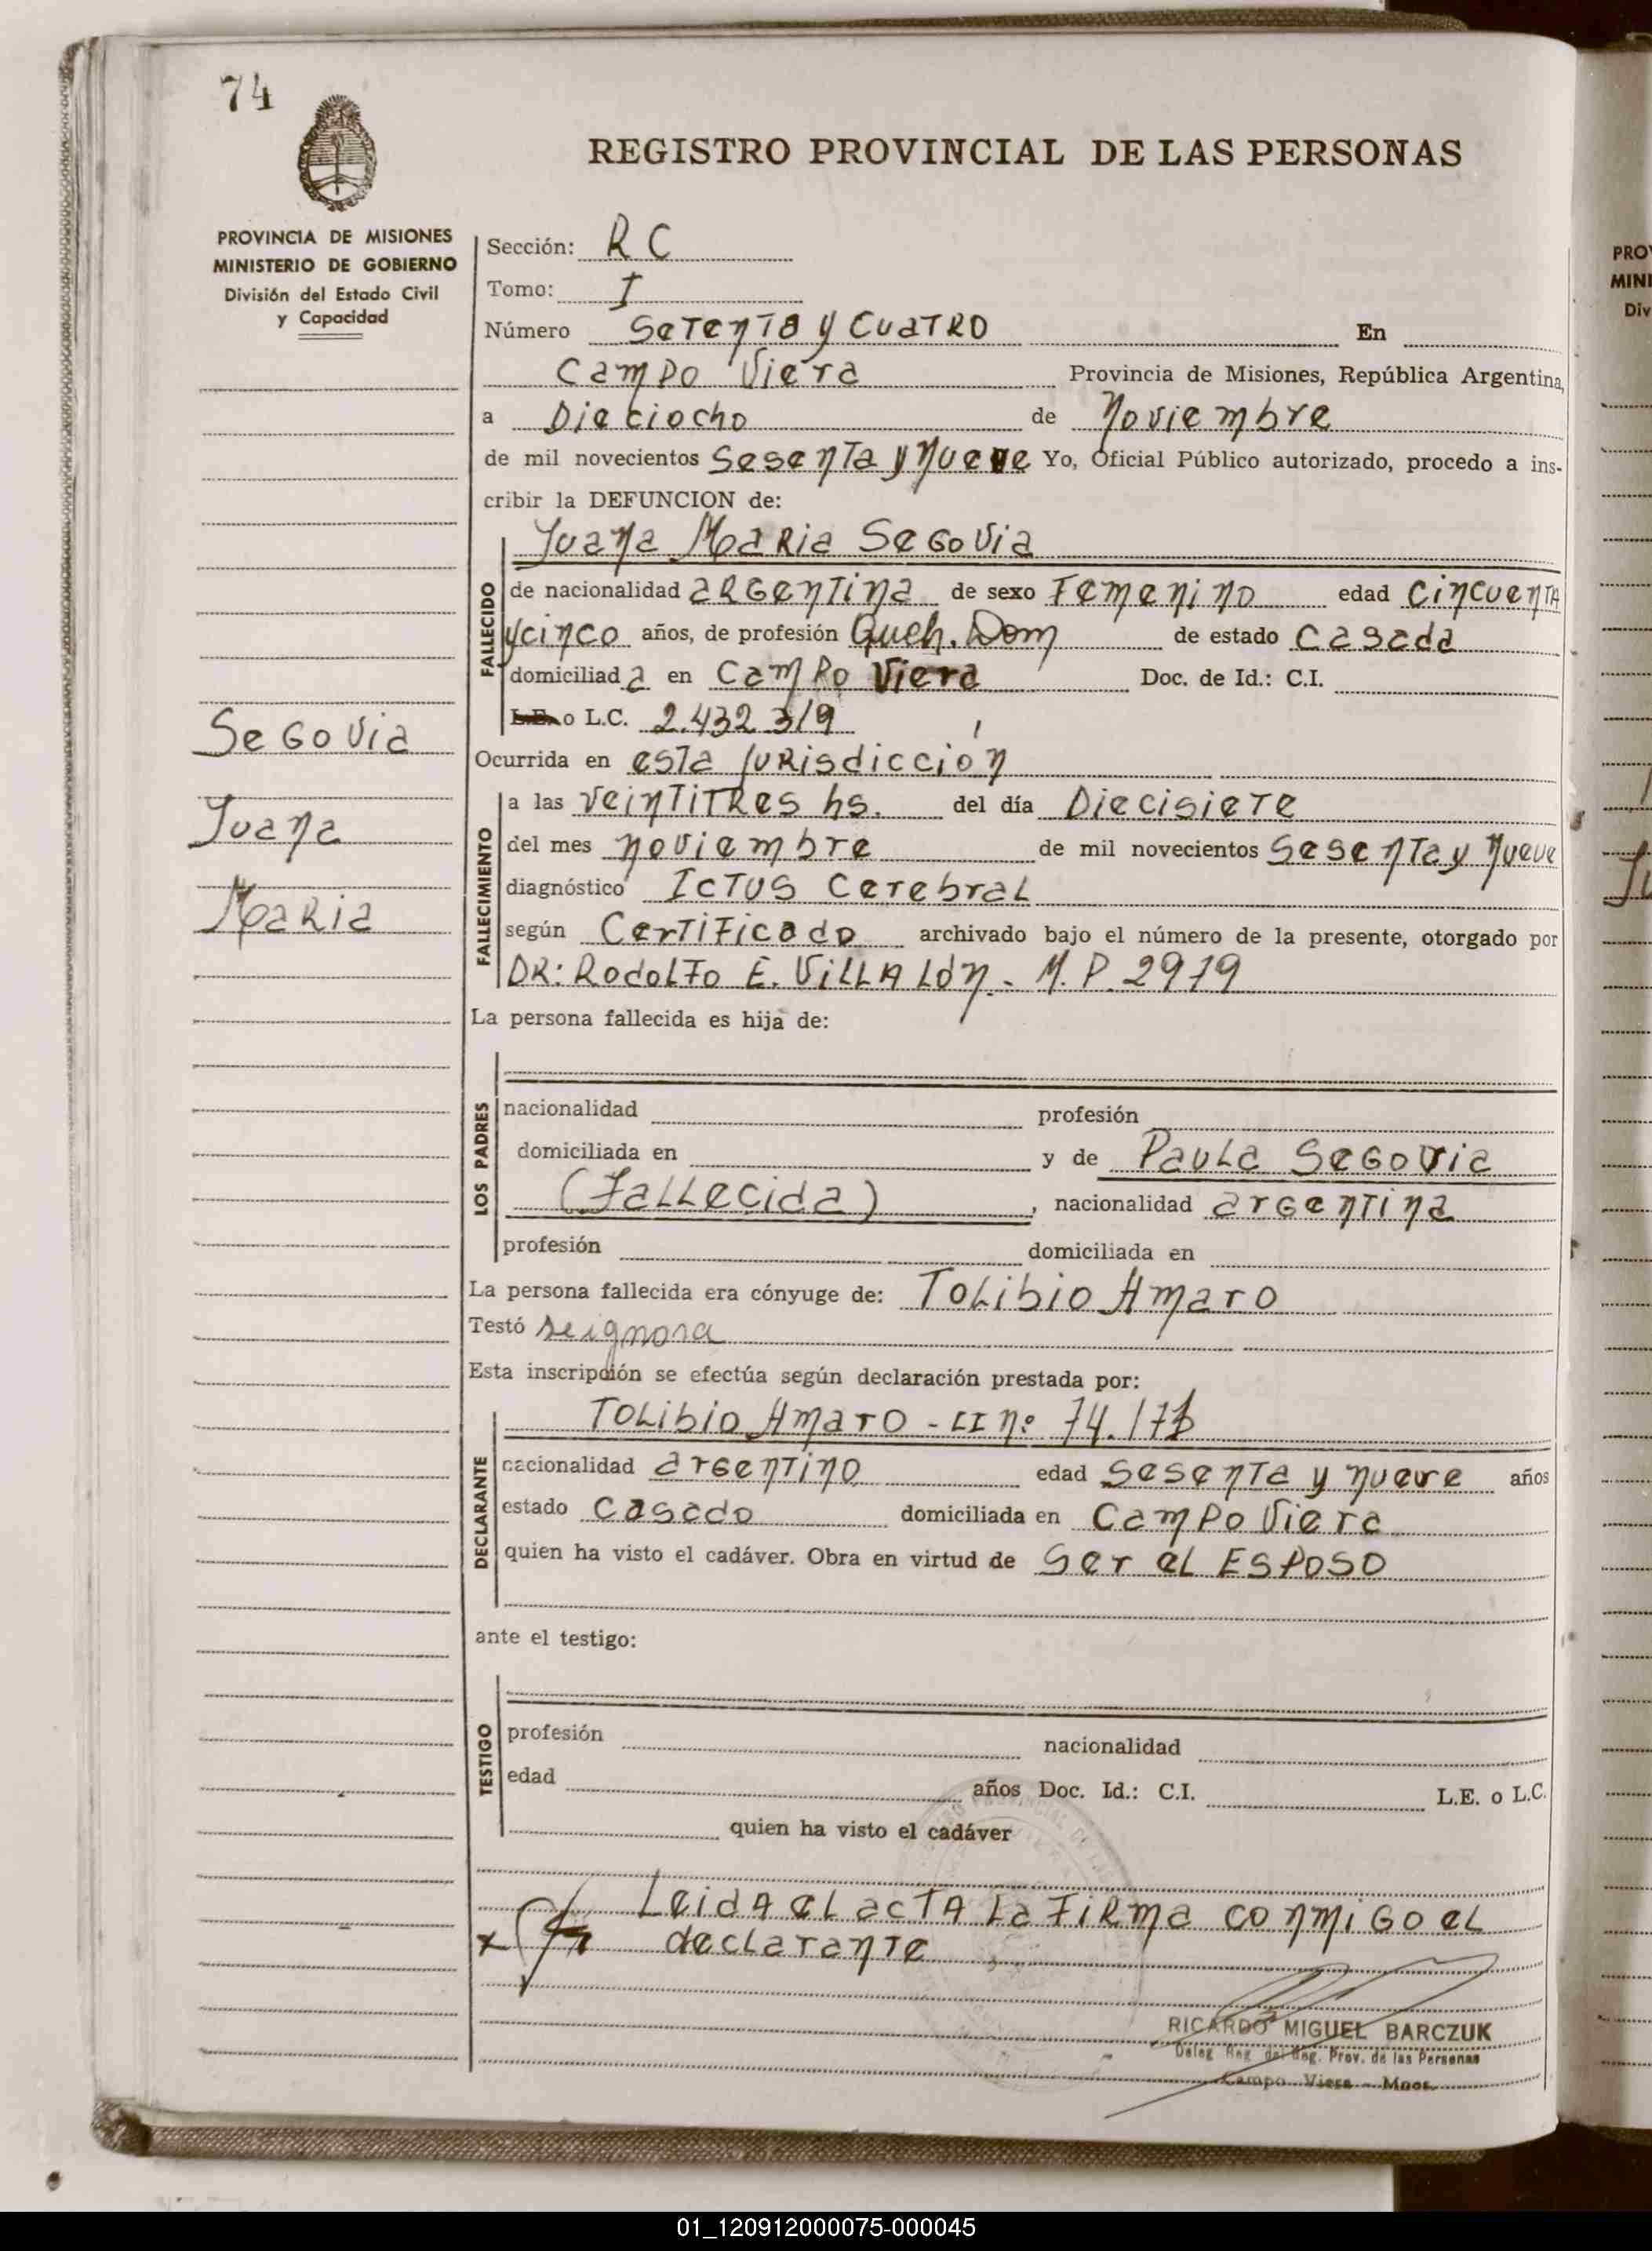 74
REGISTRO PROVINCIAL DE LAS PERSONAS
PROVINCIA DE MISIONES
MINISTERIO DE GOBIERNO
División del Estado Civil
y Capacidad
Sección: R C
Tomo: I
Número Setenta y Cuatro En
Campo Viera Provincia de Misiones, República Argentina,
a Dieciocho de Noviembre
de mil novecientos Sesenta y Nueve Yo, Oficial Público autorizado, procedo a ins-
cribir la DEFUNCION de:
Juana Maria Segovia
FALLECIDO
de nacionalidad argentina de sexo Femenino edad Cincuenta
y cinco años, de profesión Queh. Dom de estado Casada
domiciliada en Campo Viera Doc. de Id.: C.I.
L.E. o L.C. 2.432.319
Segovia
Juana
Maria
Ocurrida en esta Jurisdicción
FALLECIMIENTO
a las veintitres hs. del día Diecisiete
del mes noviembre de mil novecientos Sesenta y Nueve
diagnóstico Ictus Cerebral
según Certificado archivado bajo el número de la presente, otorgado por
DR: Rodolfo E. Villalón - M.P. 2979
La persona fallecida es hija de:
LOS PADRES
nacionalidad profesión
domiciliada en y de Paula Segovia
(Fallecida), nacionalidad argentina
profesión domiciliada en
La persona fallecida era cónyuge de: Tolibio Amaro
Testó se ignora
Esta inscripción se efectúa según declaración prestada por:
DECLARANTE
Tolibio Amaro - nº 74.17
nacionalidad argentino edad Sesenta y nueve años
estado Casado domiciliada en Campo Viera
quien ha visto el cadáver. Obra en virtud de Ser el Esposo
ante el testigo:
TESTIGO
profesión nacionalidad
edad años Doc. Id.: C.I. L.E. o L.C.
quien ha visto el cadáver
Leida el acta la firma conmigo el
x declarante
RICARDO MIGUEL BARCZUK
Deleg. Reg. del Reg. Prov. de las Personas
Campo Viera - Mnes.
PRO
MINI
Div
01_120912000075-000045